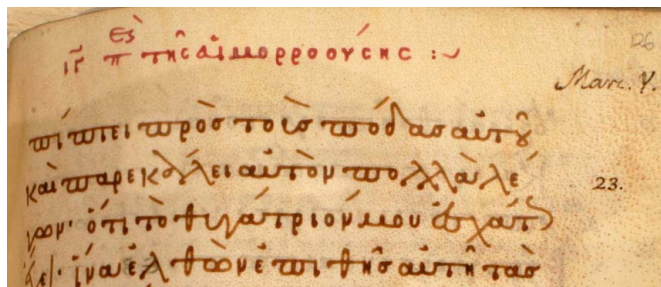 ιγ π τῆς αἱμορροούσης :~
126
Marc. V.
πίπτει πρὸς τοὺς πόδας αὐτοῦ
καὶ παρεκάλει αὐτὸν πολλὰ λέ
23.
γων· ὅτι τὸ θυγάτριόν μου ἐσχάτ
ἔχει· ἵνα ἐλθὼν ἐπιθῇς αὐτῇ τὰς